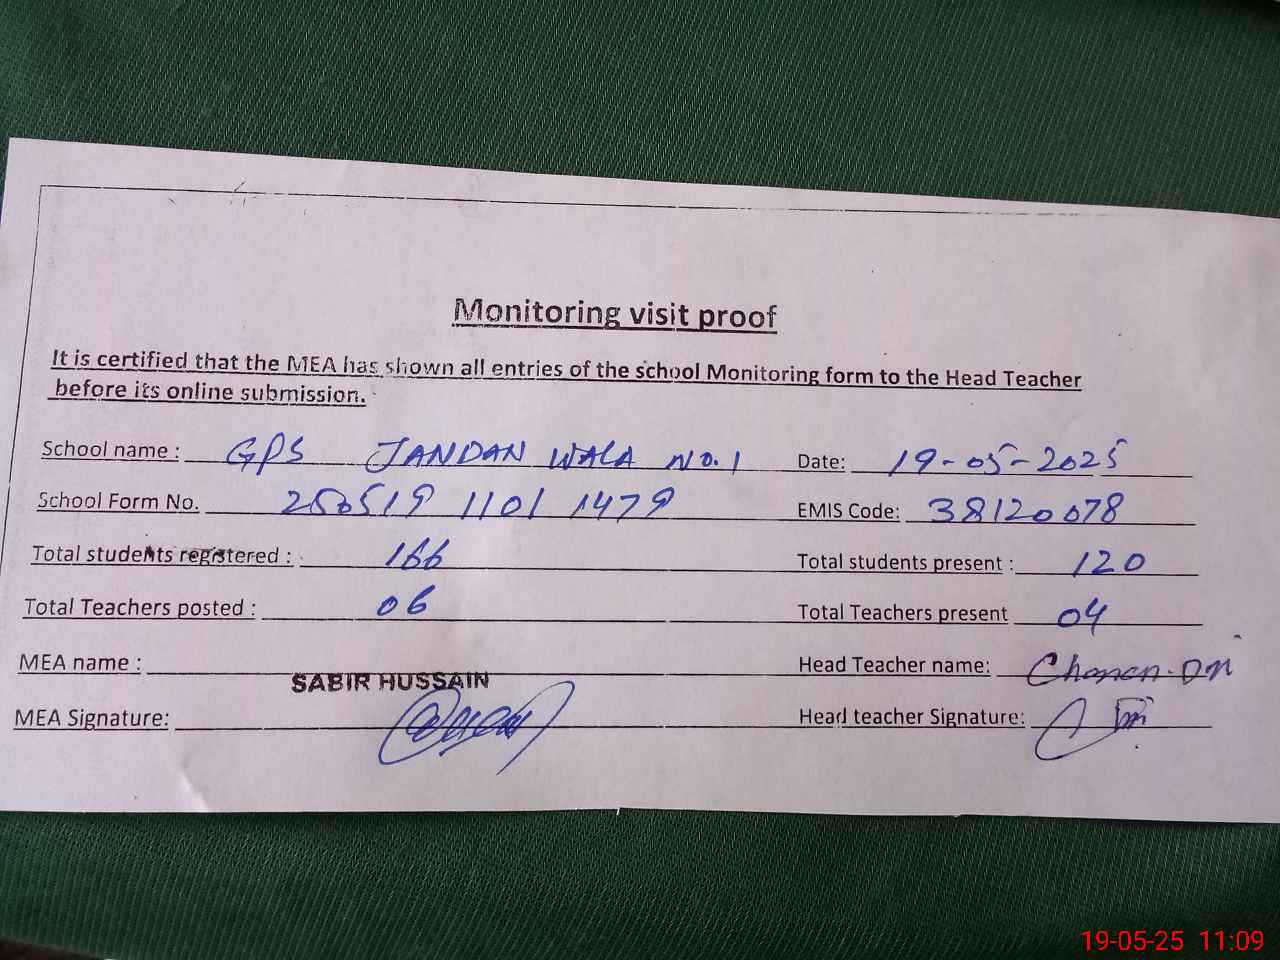 Monitoring visit proof
It is certified that the MEA has shown all entries of the school Monitoring form to the Head Teacher
before its online submission.
School name : GPS JANDAN WALA NO.1 Date: 19-05-2025
School Form No. 250519 1101 1479 EMIS Code: 38120078
Total students registered : 166 Total students present : 120
Total Teachers posted : 06 Total Teachers present 04
MEA name : SABIR HUSSAIN Head Teacher name: Chanan
MEA Signature: Head teacher Signature:
19-05-25 11:09